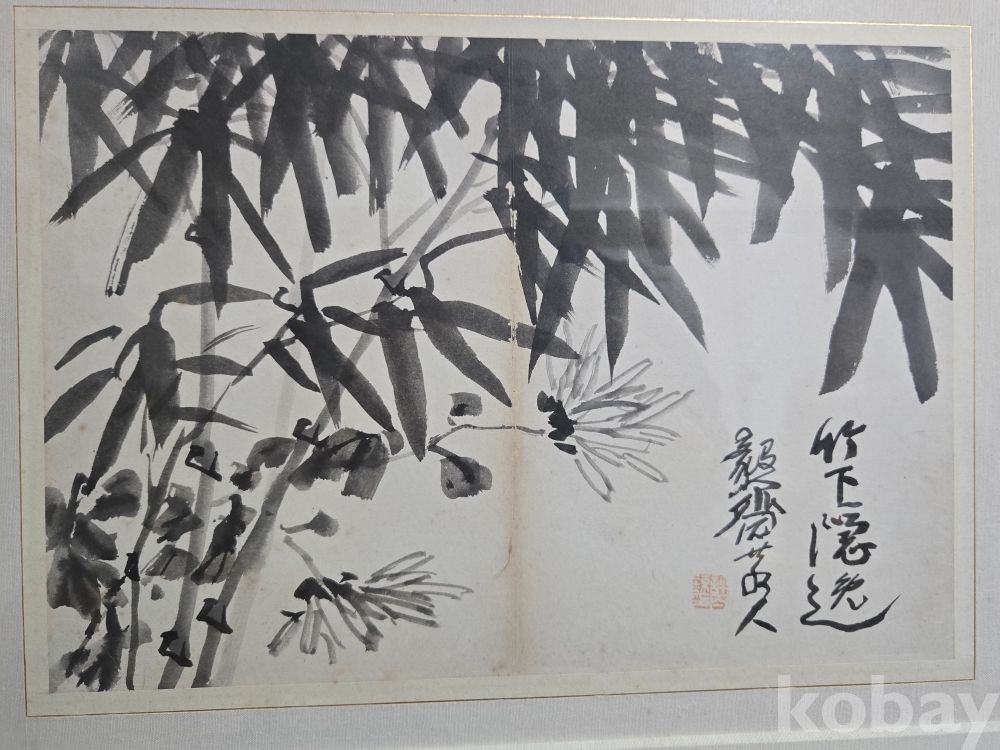 竹下隱逸
毅齋散人
kobay